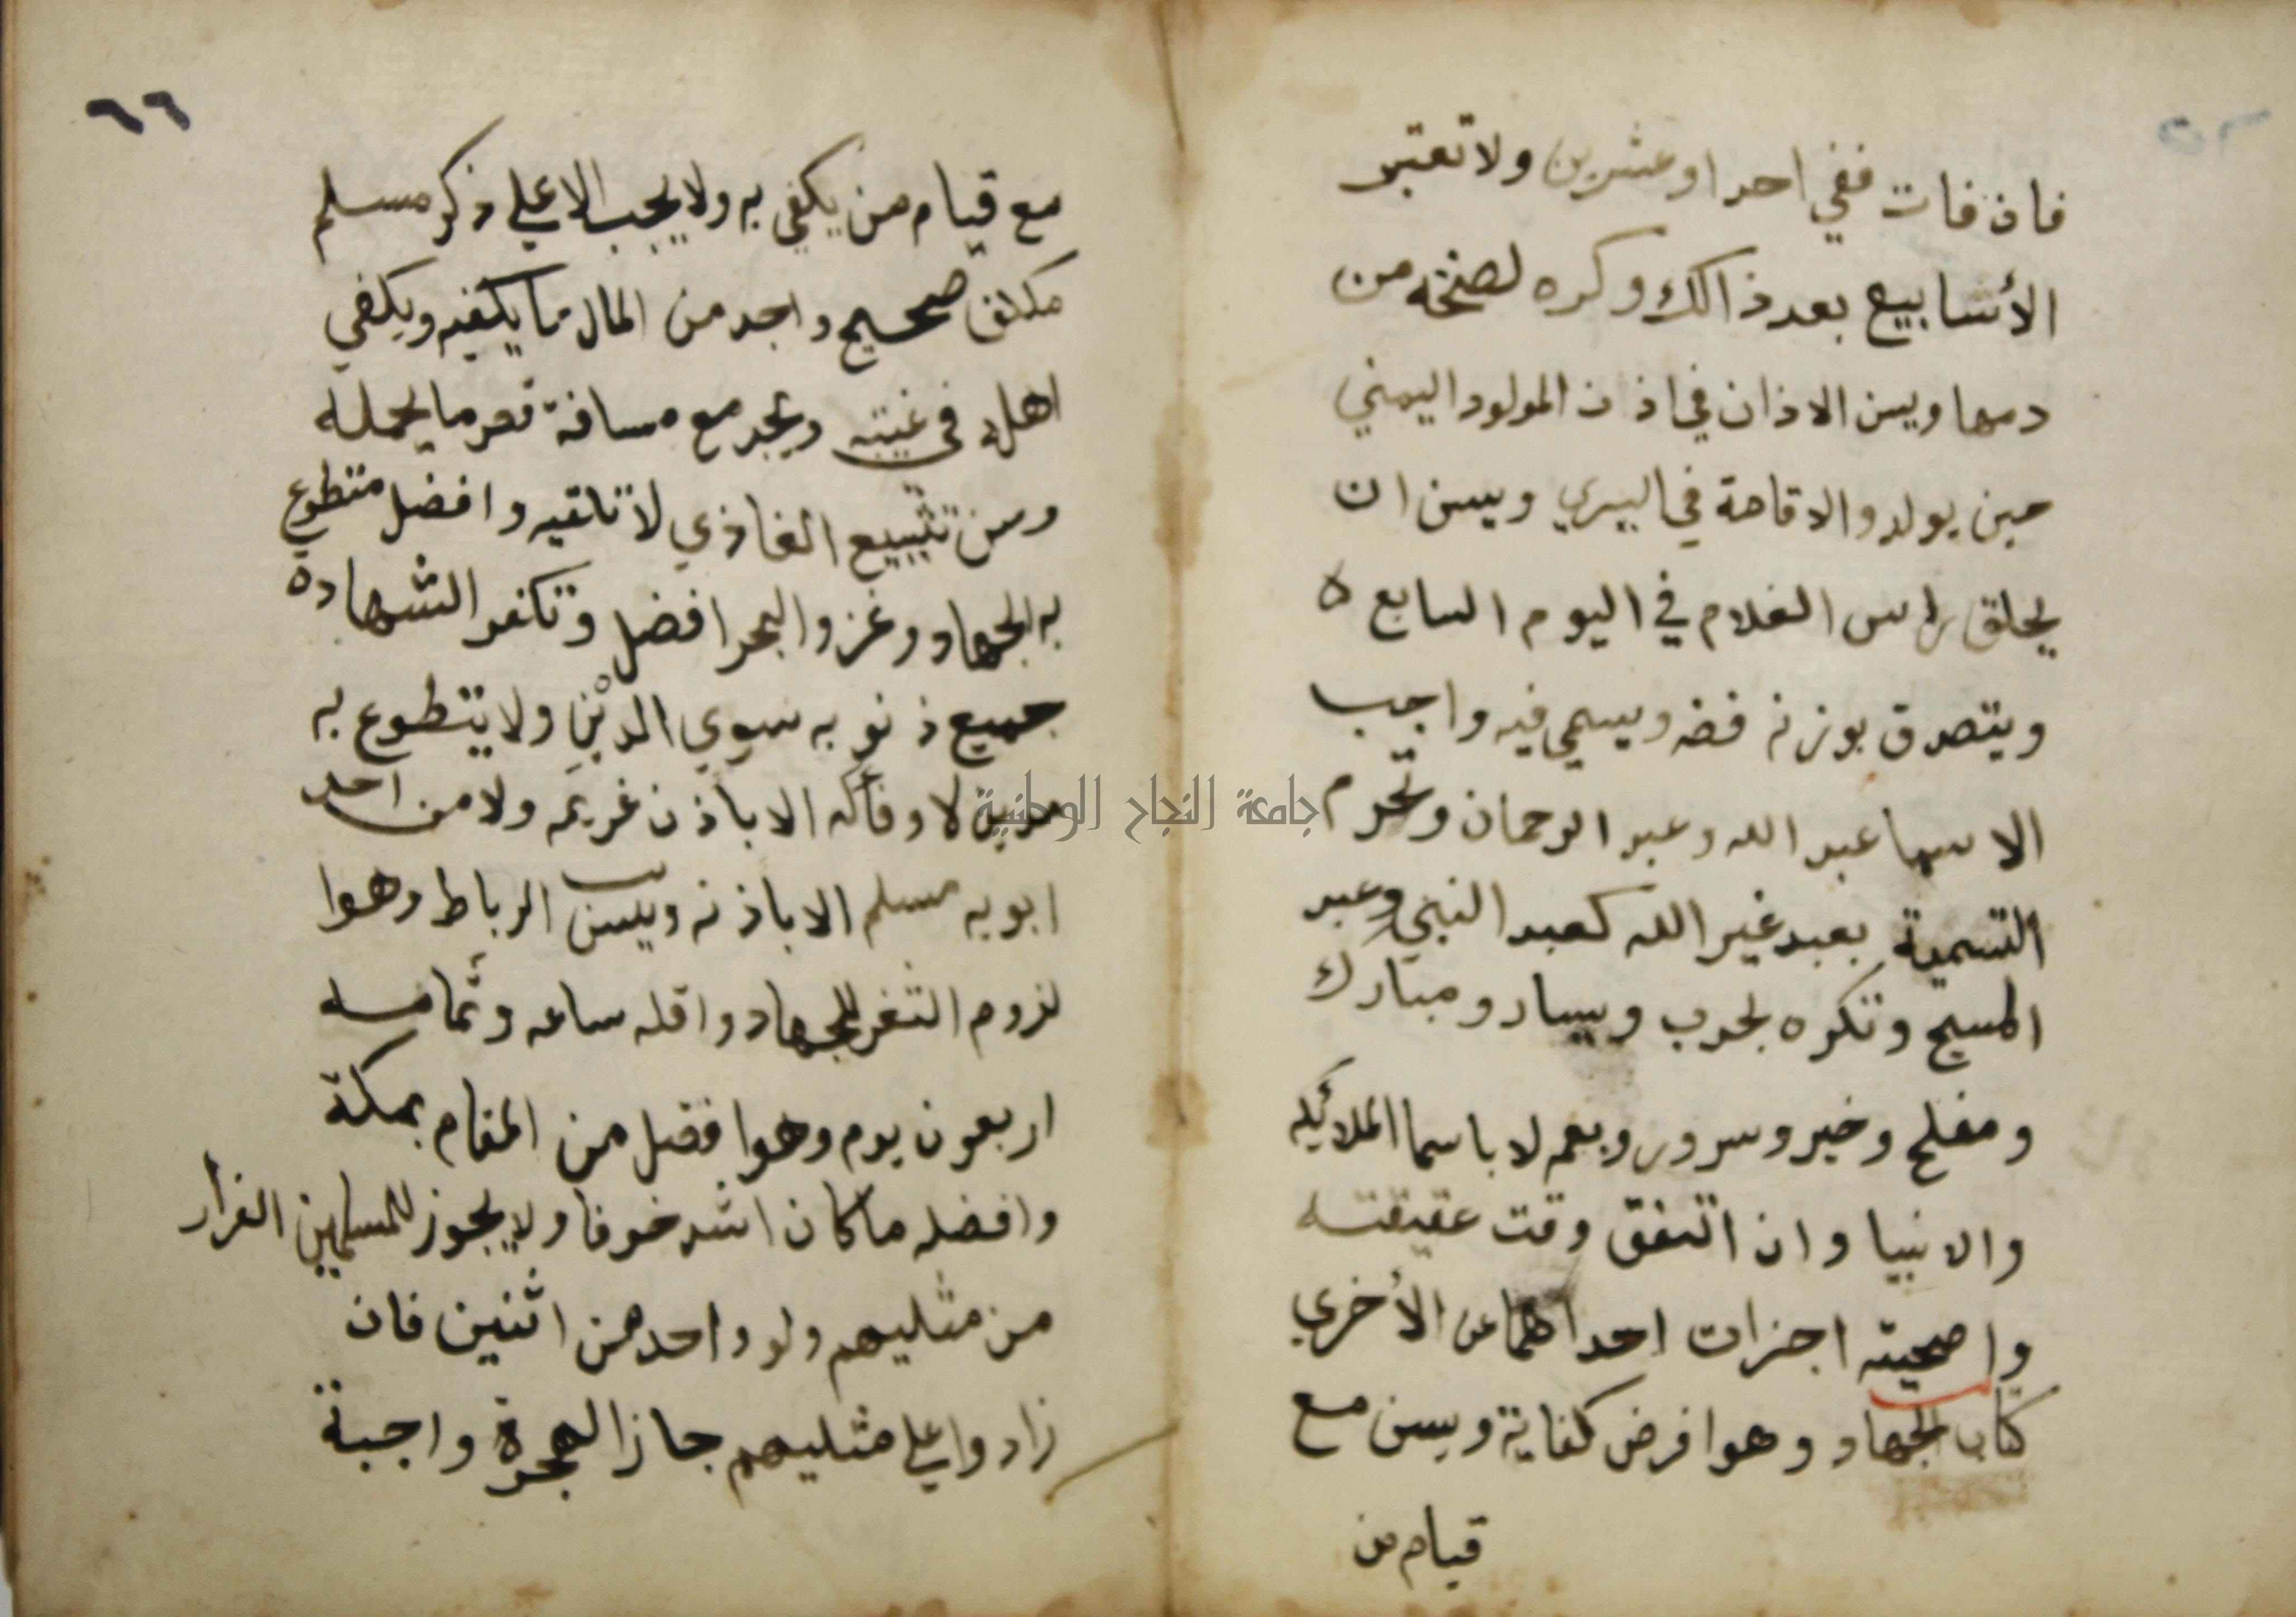 فان فات ففي احد اوعشرين ولا تعتبر
الأسابيع بعد ذالك وكره لصخه من
دمها ويسن الاذان في اذن المولود اليمني
حين يولد والاقامة في اليسري ويسن ان
يحلق راس الغلام في اليوم السابع ه
ويتصدق بوزنه فضه ويسمي فيه واجب
الاسما عبد الله وعبد الرحمان وتحرم
التسمية بعبد غير الله كعبد النبي وعبد
المسيح وتكره بحرب ويسار ومبارك
ومفلح وخير وسرور وبعم لا باسما الملائكه
والانبيا وان اتفق وقت عقيقته
واضحيته اجزات احداهما عن الأخري
كتاب الجهاد وهوا فرض كفاية ويسن مع
قيام من
٦٦
مع قيام من يكفي به ولا يجب الا علي ذكر مسلم
مكلف صحيح واجد من المال ما يكفيه ويكفي
اهله في غيبته ويجد مع مسافة قصر ما يحمله
وسن تشييع الغازي لا تلقيه وافضل متطوع
به الجهاد وغزو البحر افضل وتكفر الشهادة
جميع ذنوبه سوي الدين ولا يتطوع به
مدين لا وفا له الا باذن غريمه ولا من احد
ابويه مسلم الا باذنه ويسن الرباط وهوا
لزوم الثغر للجهاد واقله ساعه وتمامه
اربعون يوم وهوا فضل من المقام بمكة
وافضله ما كان اشد خوفا ولا يجوز للمسلمين الفرار
من مثليهم ولو واحد من اثنين فان
زادوا علي مثليهم جاز الهجرة واجبة
جامعة النجاح الوطنية